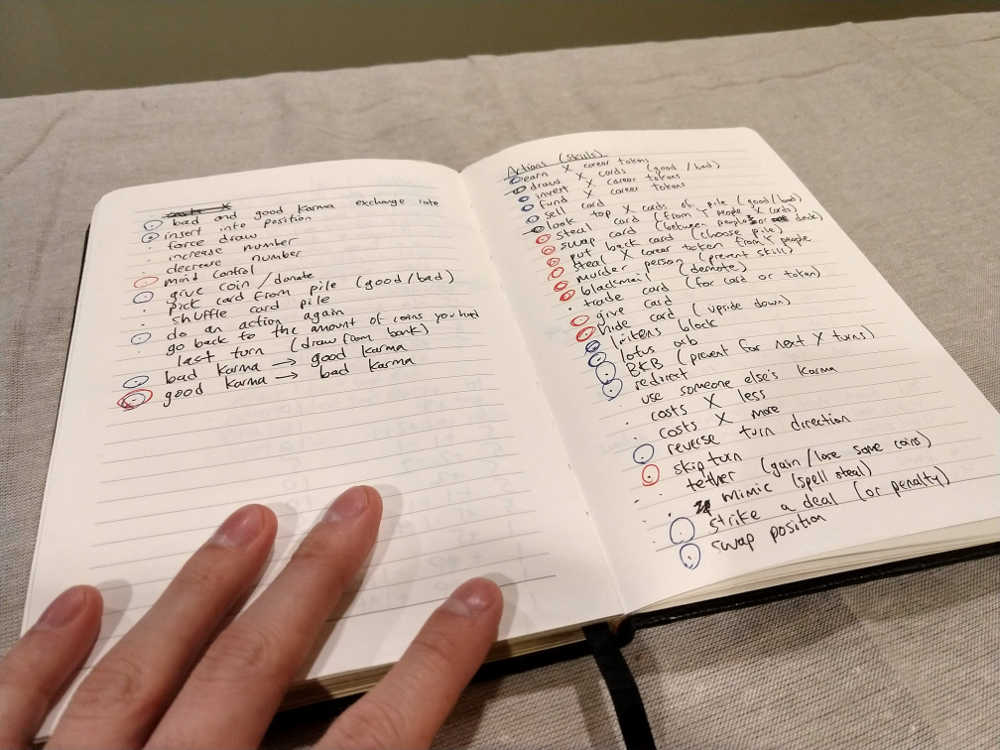 bad and good karma exchange rate
insert into position
force draw
increase number
decrease number
mind control
give coin / donate
pick card from pile (good / bad)
shuffle card pile
do an action again
go back to the amount of coins you had
last turn (draw from bank)
bad karma → good karma
good karma → bad karma
Actions (skills)
earn X career tokens
draw X cards (good / bad)
invest X career tokens
fund X career tokens
sell card
look top X cards of pile (good / bad)
steal card (from Y people X cards)
swap card (between people or deck)
put back card (choose pile)
steal X career token from Y people
murder person (prevent skill)
blackmail (demote)
trade card (for card or token)
give card
hide card (upside down)
linkens block
lotus orb
BKB (prevent for next X turns)
redirect
use someone else's karma
costs X less
costs X more
reverse turn direction
skip turn
tether (gain / lose same coins)
mimic (spell steal)
strike a deal (or penalty)
swap position